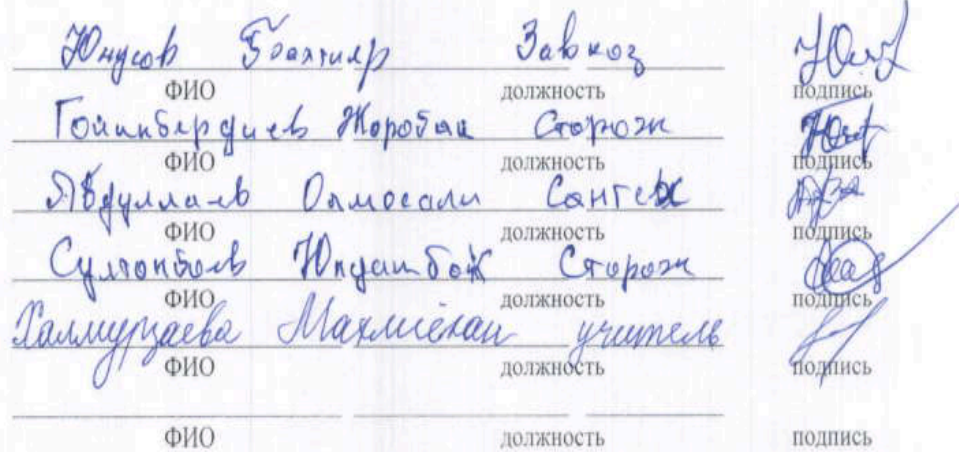 Юнусов Бахтияр Завхоз
ФИО должность подпись
Гойипбердиев Жоробай Сторож
ФИО должность подпись
Абдуллаев Олмосали Сантех
ФИО должность подпись
Султонбоев Юлдашбой Сторож
ФИО должность подпись
Халмурзаева учитель
ФИО должность подпись
ФИО должность подпись